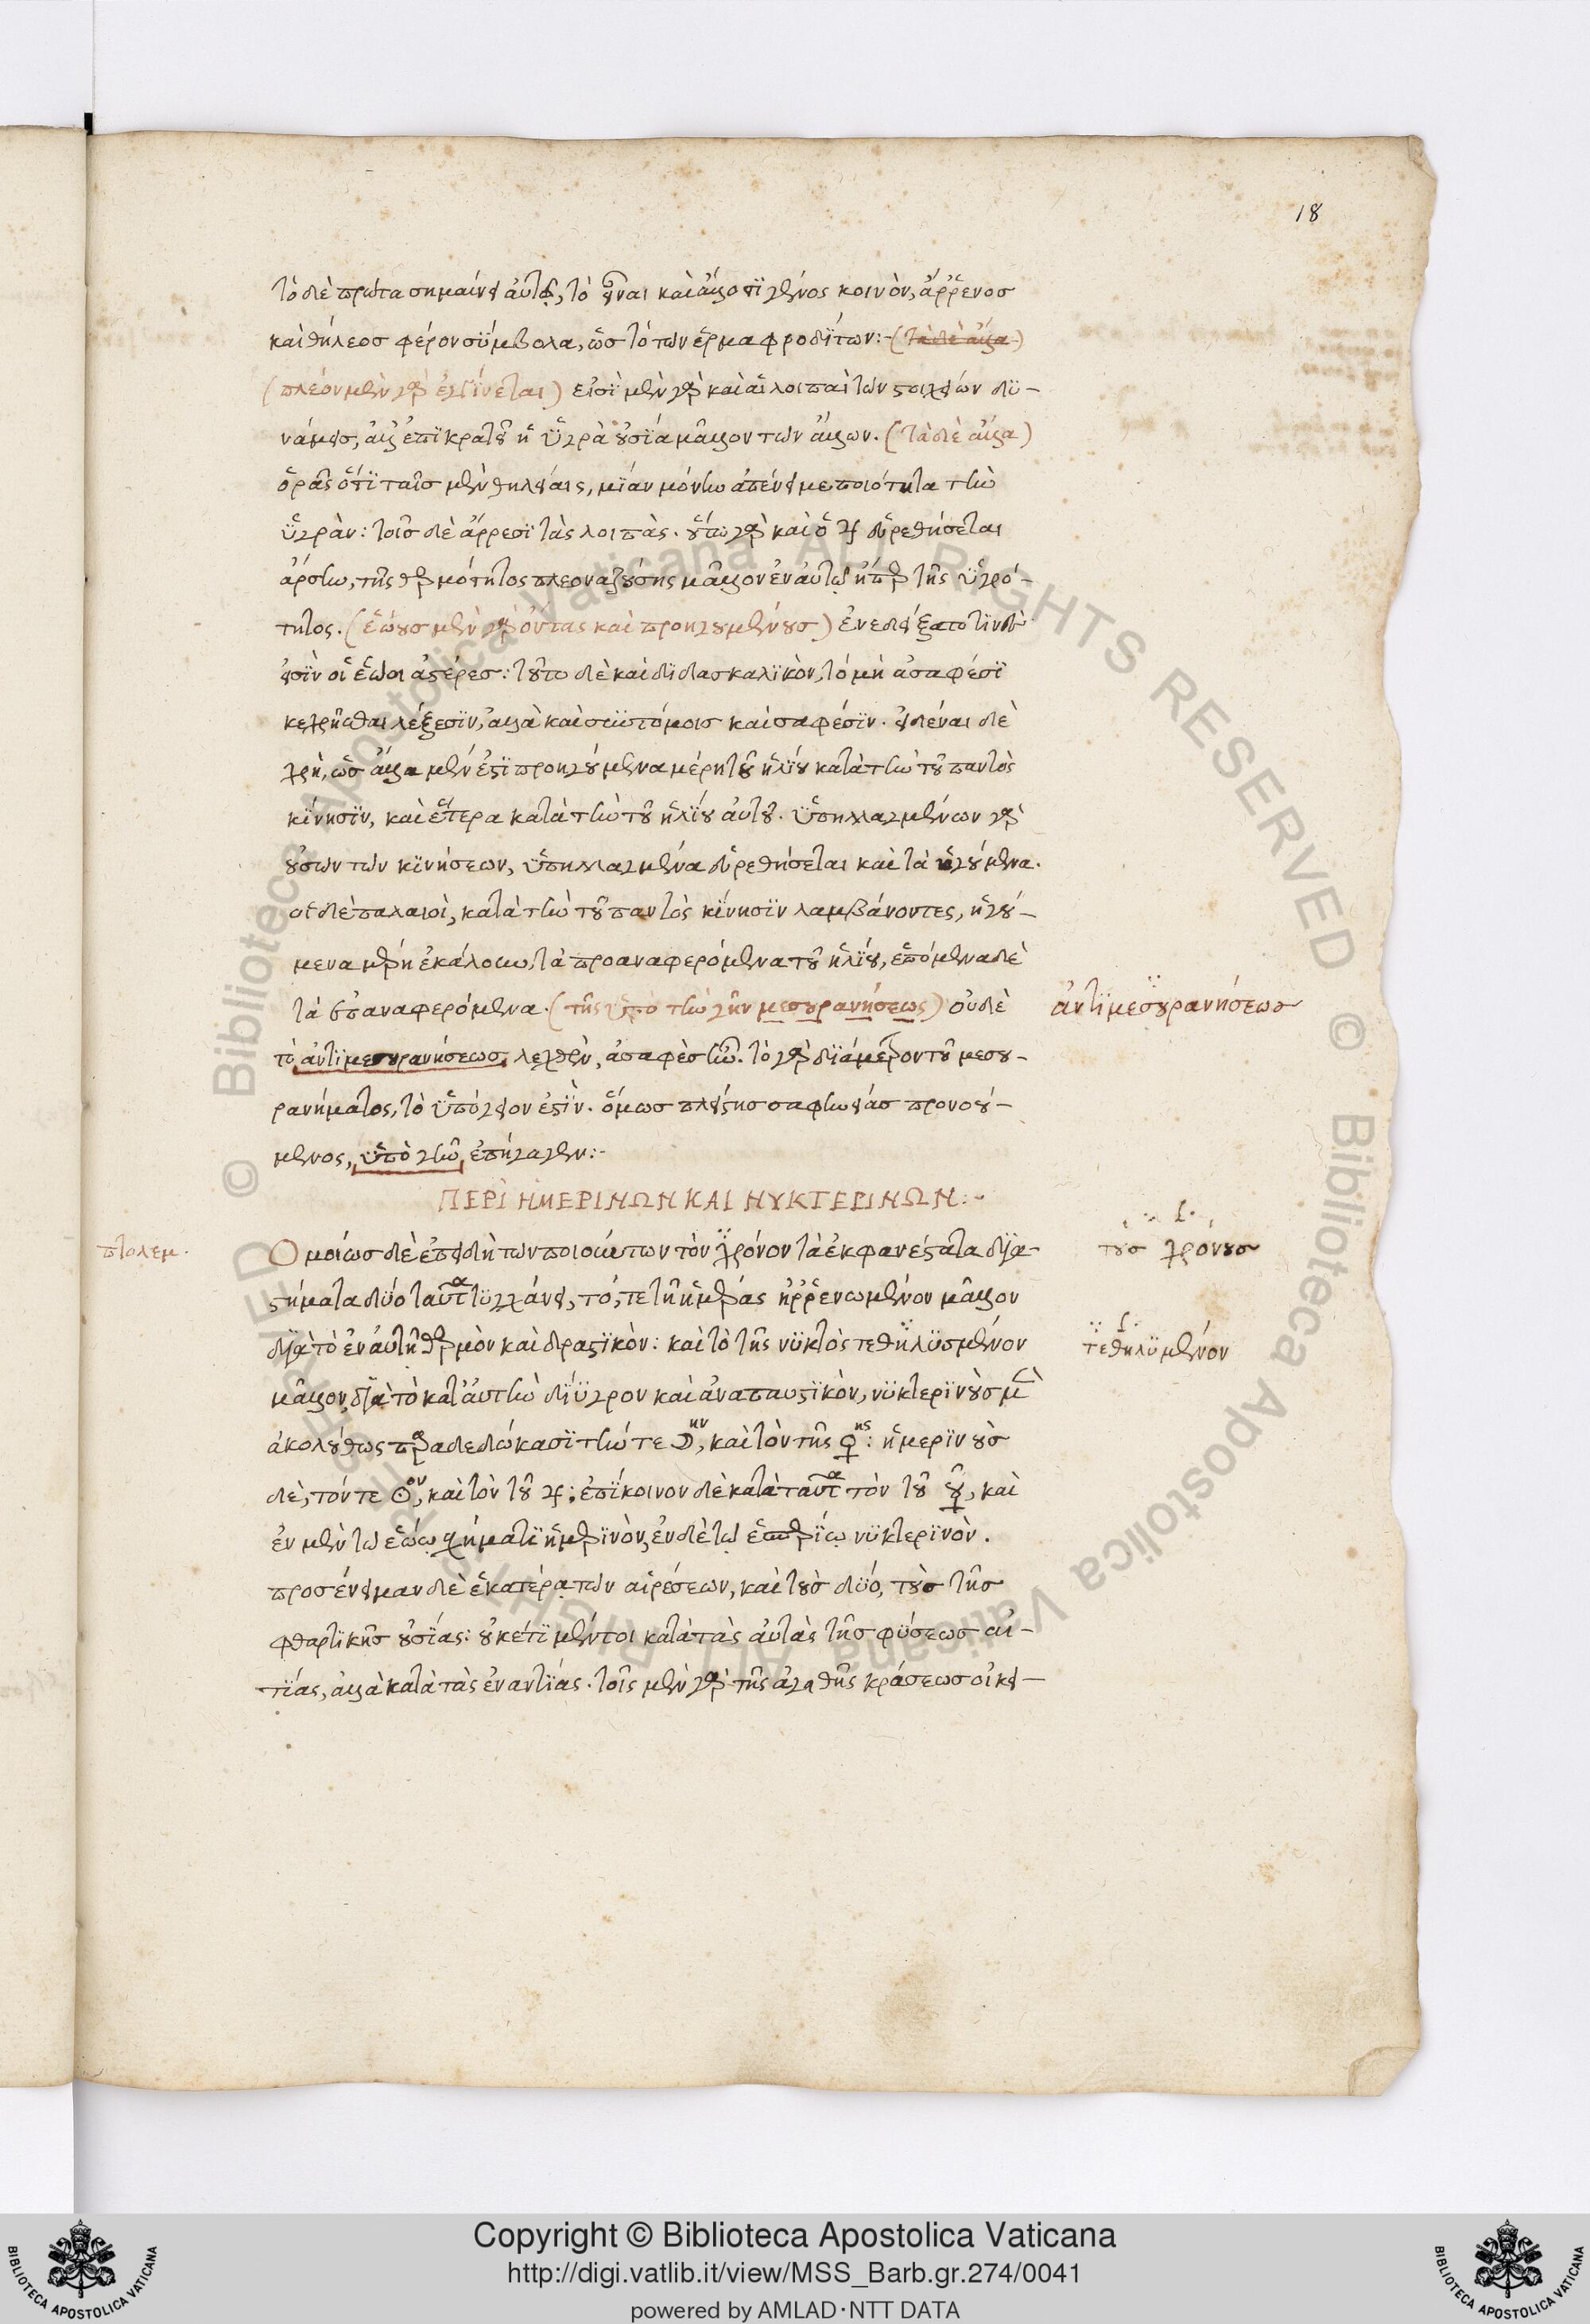 18
τὸ δὲ πρῶτα σημαίνει αὐτῷ, τὸ εἶναι καὶ ἄλλό τι γένος κοινὸν, ἄρρενος
καὶ θήλεος φέρον σύμβολα, ὡς τὸ τῶν ἑρμαφροδίτων:- (τὰ δὲ ἄλλα)
(πλέον μὲν γὰρ ἐγγίνεται) εἰσὶ μὲν γὰρ καὶ αἱ λοιπαὶ τῶν στοιχείων δυ-
νάμεις, ἀλλ' ἐπικρατεῖ ἡ ὑγρὰ οὐσία μᾶλλον τῶν ἄλλων. (τὰ δὲ ἄλλα)
ὁρᾶς ὅτι ταῖς μὲν θηλείαις, μίαν μόνην ἀπένειμε ποιότητα τὴν
ὑγρὰν: τοῖς δὲ ἄρρεσι τὰς λοιπὰς. οὕτω γὰρ καὶ ὁ ♃ εὑρεθήσεται
ἄρσην, τῆς θερμότητος πλεοναζούσης μᾶλλον ἐν αὐτῷ ἤπερ τῆς ὑγρό-
τητος. (ἑώους μὲν γὰρ ὄντας καὶ προηγουμένους) ἐνεδείξατο τίνες
εἰσὶν οἱ ἑῷοι ἀστέρες: τοῦτο δὲ καὶ διδασκαλικὸν, τὸ μὴ ἀσαφέσι
κεχρῆσθαι λέξεσιν, ἀλλὰ καὶ συστόμοις καὶ σαφέσιν. εἰδέναι δὲ
χρὴ, ὡς ἄλλα μέν ἐστι προηγούμενα μέρη τοῦ ἡλίου κατὰ τὴν τοῦ παντὸς
κίνησιν, καὶ ἕτερα κατὰ τὴν τοῦ ἡλίου αὐτοῦ. ὑπηλλαγμένων γὰρ
οὐσῶν τῶν κινήσεων, ὑπηλλαγμένα εὑρεθήσεται καὶ τὰ ἡγούμενα.
οἱ δὲ παλαιοὶ, κατὰ τὴν τοῦ παντὸς κίνησιν λαμβάνοντες, ἡγού-
μενα μέρη ἐκάλουν, τὰ προαναφερόμενα τοῦ ἡλίου, ἑπόμενα δὲ
τὰ ἐπαναφερόμενα. (τῆς ὑπὸ τὴν γῆν μεσουρανήσεως) οὐδὲ
τὸ ἀντιμεσουρανήσεως λεχθὲν, ἀσαφὲς ἦν. τὸ γὰρ διάμετρον τοῦ μεσου-
ρανήματος, τὸ ὑπόγειον ἐστὶν. ὅμως πλείστης σαφηνείας προνοού-
μενος, ὑπὸ γῆν ἐπήγαγεν:-
ΠΕΡῚ ἩΜΕΡΙΝΩΝ ΚΑΙ ΝΥΚΤΕΡΙΝΩΝ:-
Ὁμοίως δὲ ἐπειδὴ τῶν ποιούντων τὸν χρόνον τὰ ἐκφανέστατα δια-
στήματα δύο ταῦτα τυγχάνει, τό, τε τῆς ἡμέρας ἠρρενωμένον μᾶλλον
διὰ τὸ ἐν αὐτῇ θερμὸν καὶ δραστικὸν: καὶ τὸ τῆς νυκτὸς τεθηλυσμένον
μᾶλλον, διὰ τὸ κατ' αὐτὴν δίυγρον καὶ ἀναπαυστικὸν, νυκτερινοὺς μὲν
ἀκολούθως παραδεδώκασι τήν τε ☽ην, καὶ τὸν τῆς ♀ης: ἡμερινοὺς
δὲ, τόν τε ☉ον, καὶ τὸν τοῦ ♃: ἐπίκοινον δὲ κατὰ ταῦτα τὸν τοῦ ☿οῦ, καὶ
ἐν μὲν τῷ ἑῴῳ σχήματι ἡμερινὸν, ἐν δὲ τῷ ἑσπερίῳ νυκτερινὸν.
προσένειμαν δὲ ἑκατέρᾳ τῶν αἱρέσεων, καὶ τοὺς δύο, τοὺς τῆς
φθαρτικῆς οὐσίας: οὐκέτι μέντοι κατὰ τὰς αὐτὰς τῆς φύσεως αἰ-
τίας, ἀλλὰ κατὰ τὰς ἐναντίας. τοῖς μὲν γὰρ τῆς ἀγαθῆς κράσεως οἰκεί-
πτολεμ.
ἀντιμεσουρανήσεως
τους χρόνους
τεθηλυμένον
© Biblioteca Apostolica Vaticana ALL RIGHTS RESERVED © Biblioteca Apostolica Vaticana ALL RIGHTS RESERVED
Copyright © Biblioteca Apostolica Vaticana
http://digi.vatlib.it/view/MSS_Barb.gr.274/0041
powered by AMLAD·NTT DATA
BIBLIOTECA APOSTOLICA VATICANA
BIBLIOTECA APOSTOLICA VATICANA